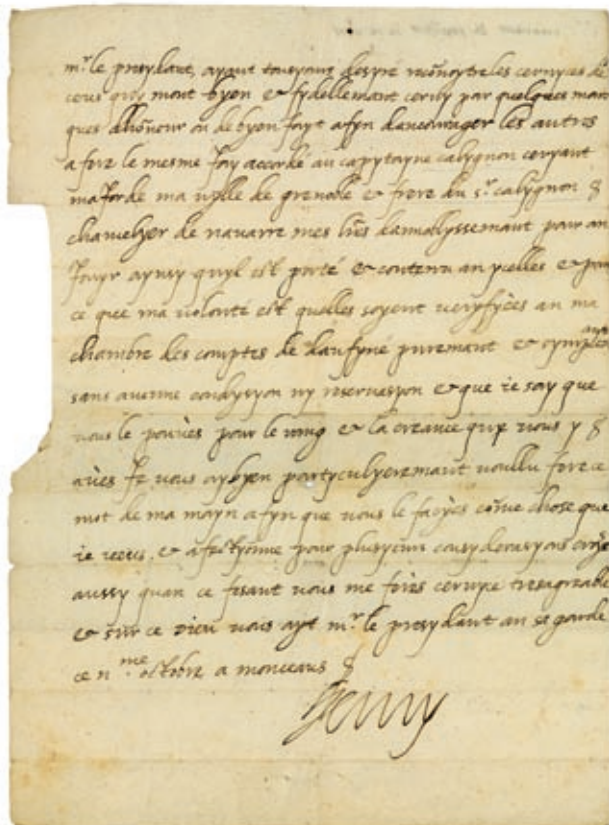 mr le presydant, ayant tousyours desyré reconoytre les cervyces de
ceus quy mont byen & fydellemant cervy par quelques marc
ques dhonneur ou de byenfayt afyn dancourager les autres
a fere le mesme Jay accordé au capytayne calygnon ceryant
maJor de ma vylle de grenoble & frere du sr. calygnon
chancelyer de navarre mes lres dannoblyssemant pour an
Jouyr aynsy quyl est porté & contenu an ycelles & pour
ce que ma volonté est quelles soyent veryfyées an ma
chambre des comptes de daufyné puremant & symplemant
sans aucune condysyon ny reservasyon & que ie say que
vous le pouvés pour le rang & la creance que vous y
avés Je vous ay byen partyculyeremant voullu fere ce
mot de ma mayn afyn que vous le facyés come chose que
ie veus & afectyonne pour plusyeurs consyderasyons croyés
aussy quan ce fesant vous me ferés cervyce tresagreable
& sur ce dieu vous ayt mr le presydant an se garde
ce me octobre a monceaus
Henry